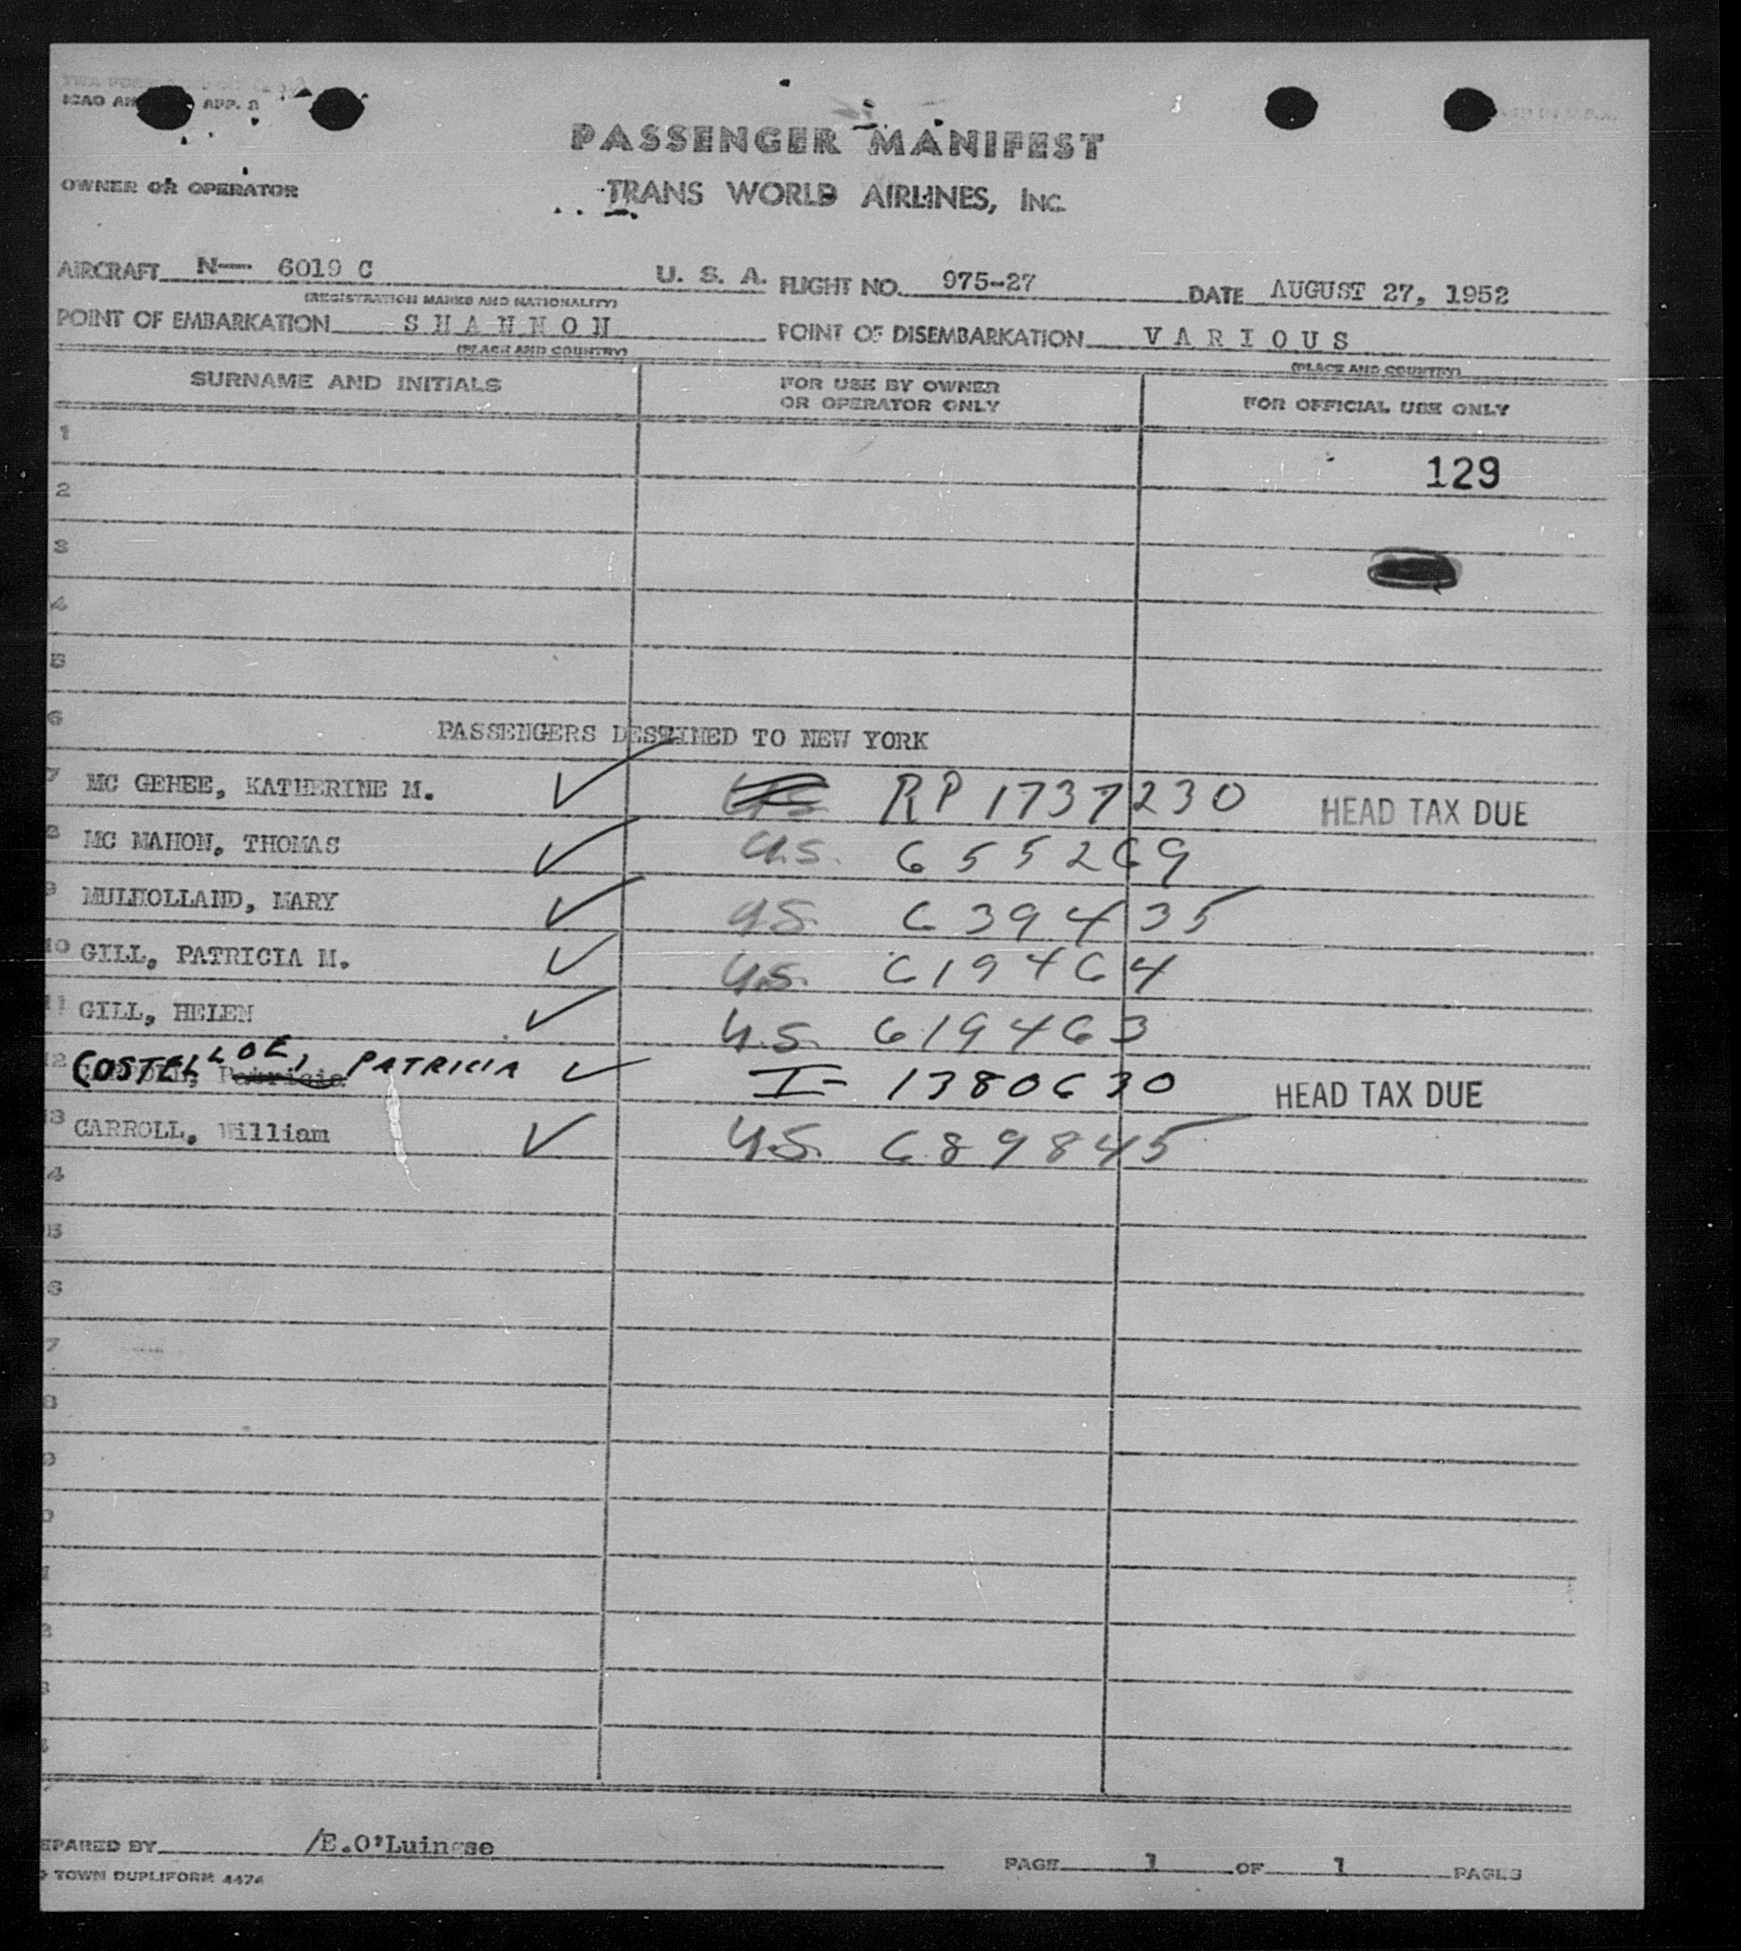 ICAO APP. 8
PASSENGER MANIFEST
OWNER OR OPERATOR TRANS WORLD AIRLINES, INC.
AIRCRAFT N— 6019 C U. S. A. FLIGHT NO. 975-27 DATE AUGUST 27, 1952
(REGISTRATION MARKS AND NATIONALITY)
POINT OF EMBARKATION S H A N N O N POINT OF DISEMBARKATION V A R I O U S
(PLACE AND COUNTRY) (PLACE AND COUNTRY)
SURNAME AND INITIALS FOR USE BY OWNER OR OPERATOR ONLY FOR OFFICIAL USE ONLY
1
129
2
3
4
5
6 PASSENGERS DESTINED TO NEW YORK
7 MC GEHEE, KATHERINE M. ✓ RP 1737230 HEAD TAX DUE
8 MC MAHON, THOMAS ✓ U.S. 655269
9 MULHOLLAND, MARY ✓ U.S. 639435
10 GILL, PATRICIA M. ✓ U.S. 619464
11 GILL, HELEN ✓ U.S. 619463
12 COSTELLOE, PATRICIA ✓ I- 1380630 HEAD TAX DUE
13 CARROLL, William ✓ U.S. 689845
4
5
6
7
8
9
0
1
2
3
EPARED BY /E.O'Luingse PAGE 1 OF 1 PAGES
TOWN DUPLIFORM 4474